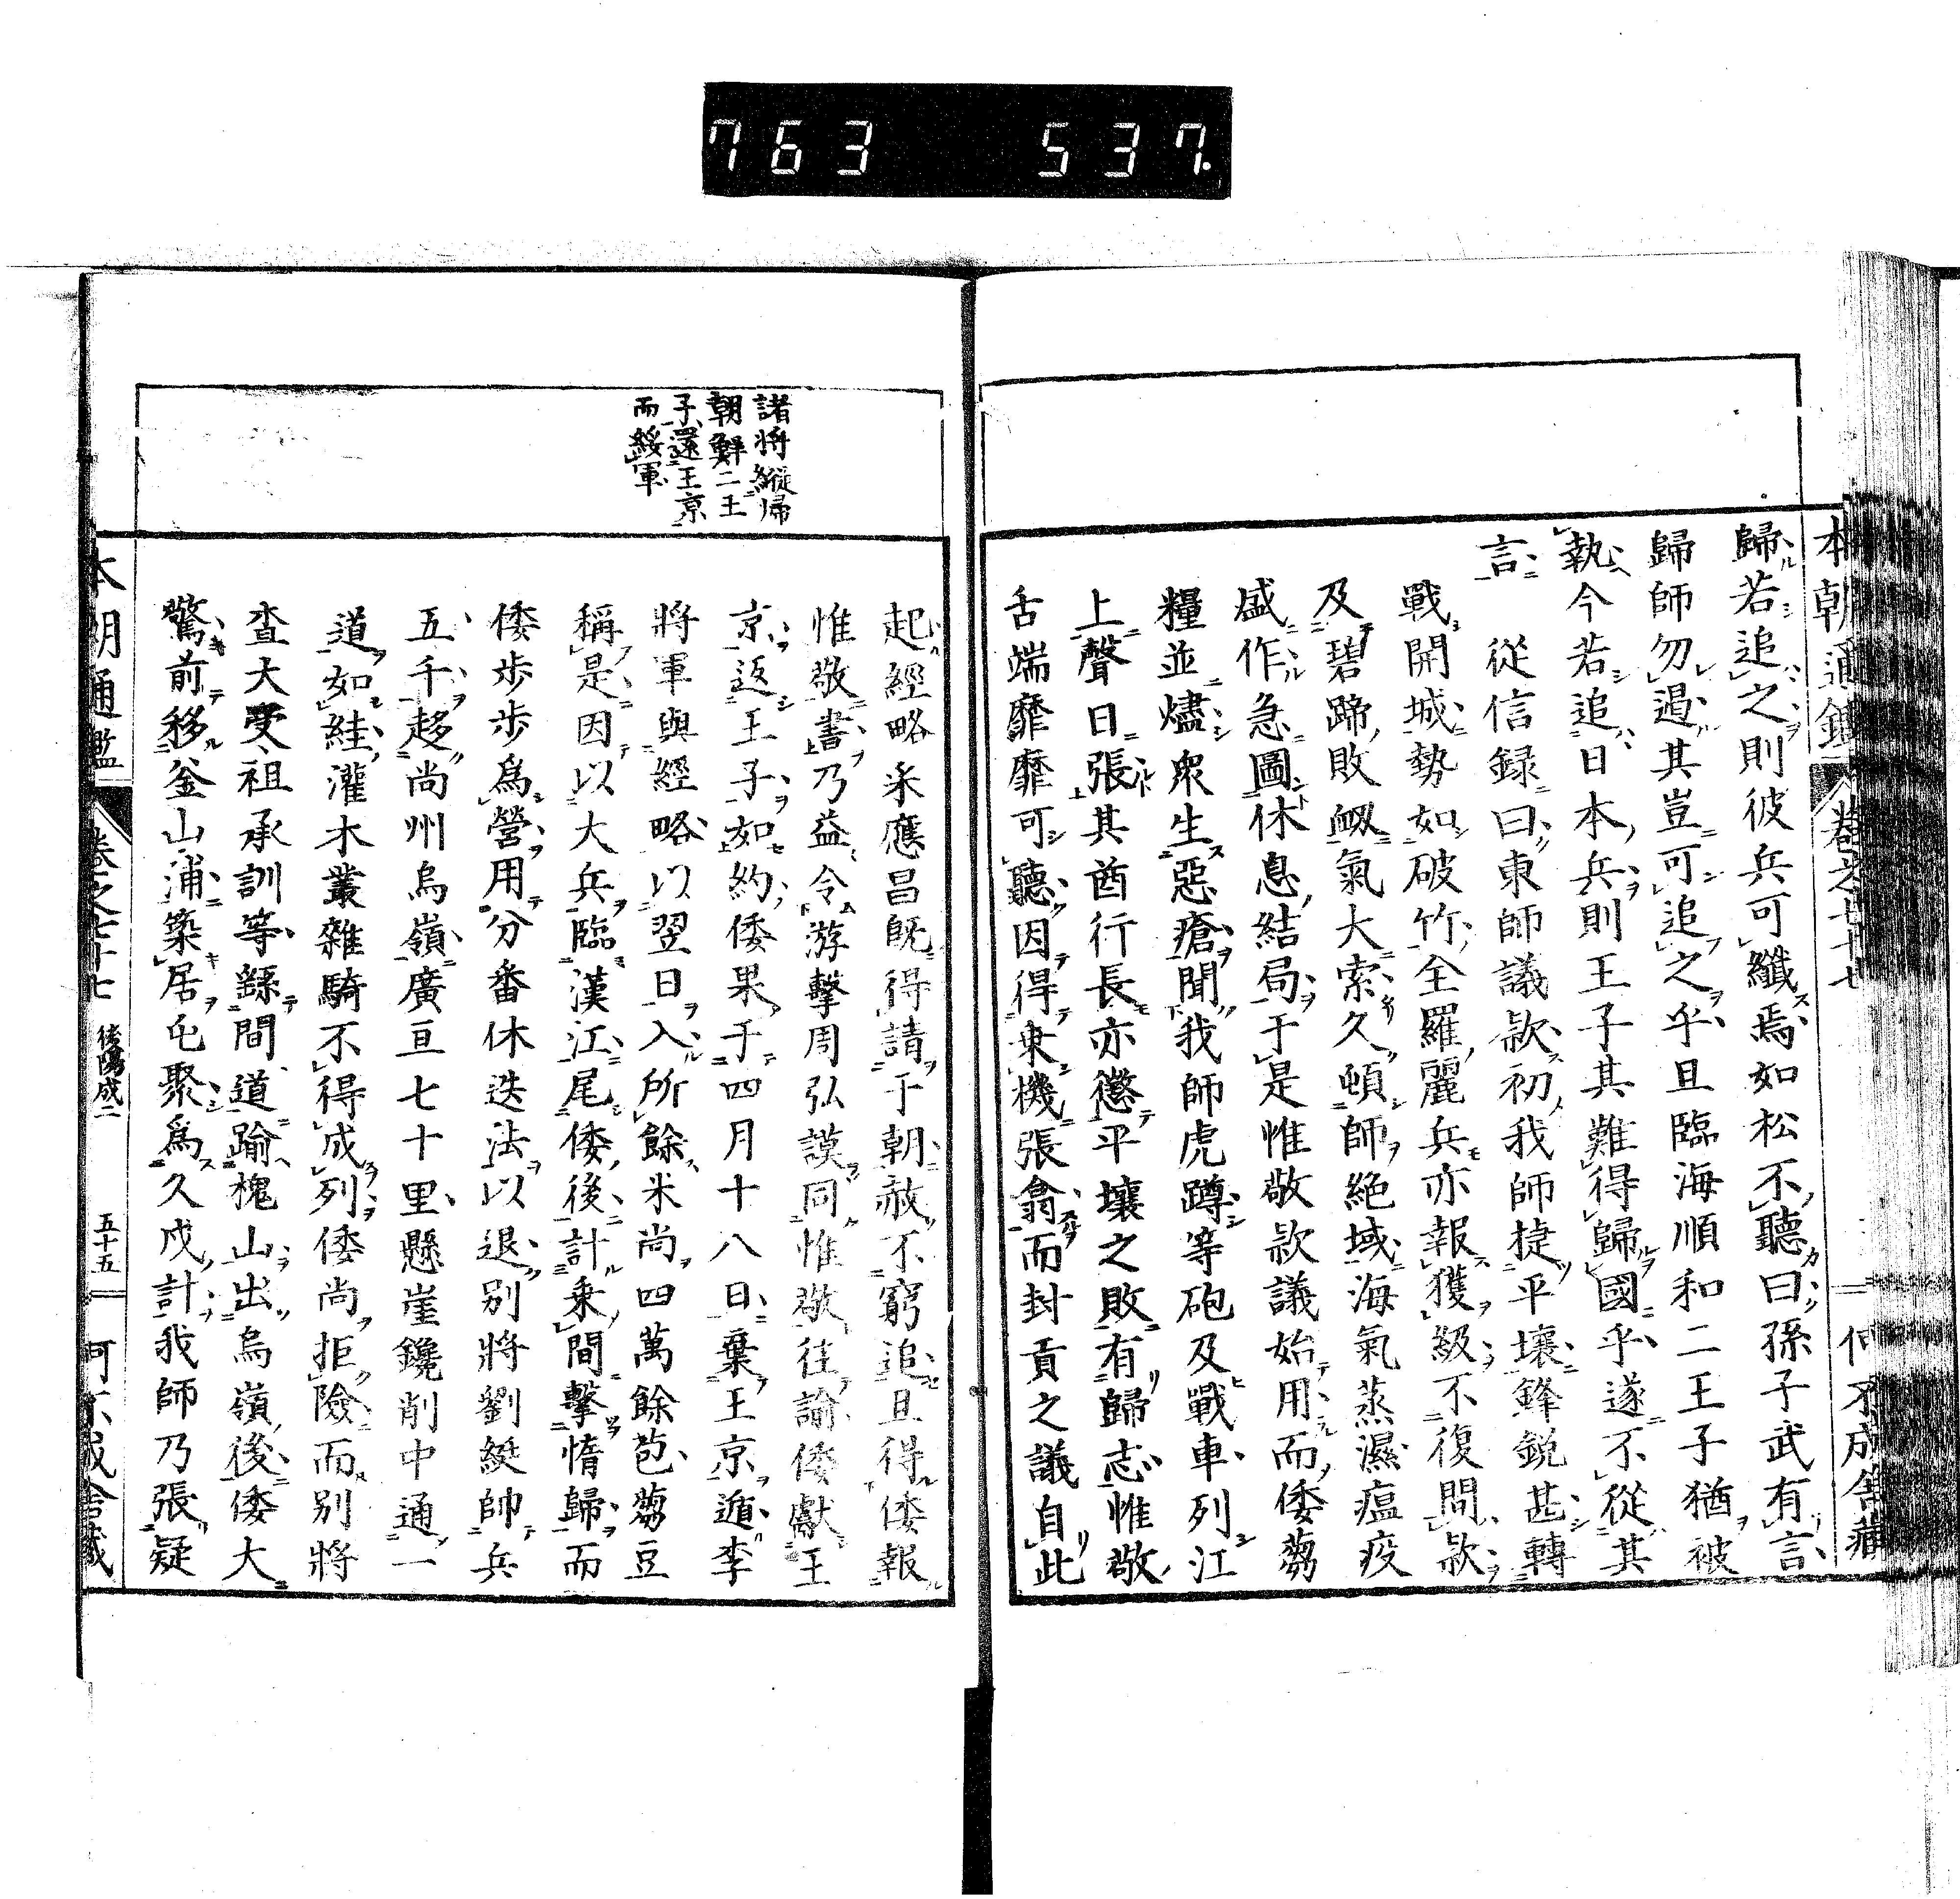 763 537.
本朝通鑑 卷之七十七 何不成舍藏
歸若追之則彼兵可殲焉如松不聽曰孫子武有言
歸師勿遏其豈可追之乎且臨海順和二王子猶被
執今若追日本兵則王子其難得歸國乎遂不從其
言
從信録曰東師議款初我師捷平壤鋒鋭甚轉
戰開城勢如破竹全羅麗兵亦報獲級不復問款
及碧蹄敗衂氣大索久頓師絶域海氣蒸濕瘟疫
盛作急圖休息結局于是惟敬款議始用而倭芻
糧並燼衆生惡瘡聞我師虎蹲等砲及戰車列江
上聲日張其酋行長亦懲平壤之敗有歸志惟敬
舌端靡靡可聽因得東機張翕而封貢之議自此
諸將縱歸
朝鮮二王
子還王京
而綏軍
起經略宋應昌既得請于朝赦不窮追且得倭報
惟敬書乃益令游擊周弘謨同惟敬往諭倭獻王
京返王子如約倭果于四月十八日棄王京遁李
將軍與經略以翌日入所餘米尚四萬餘苞芻豆
稱是因以大兵臨漢江尾倭後計乘間擊惰歸而
倭歩歩爲營用分番休迭法以退別將劉綎帥兵
五千趍尚州烏嶺廣亘七十里懸崖鑱削中通一
道如絓灌木叢雜騎不得成列倭尚拒險而別將
査大受祖承訓等繇間道踰槐山出烏嶺後倭大
驚前移釜山浦築居屯聚爲久戍計我師乃張疑
本朝通鑑 卷之七十七 後陽成二 五十五 何不成舍藏